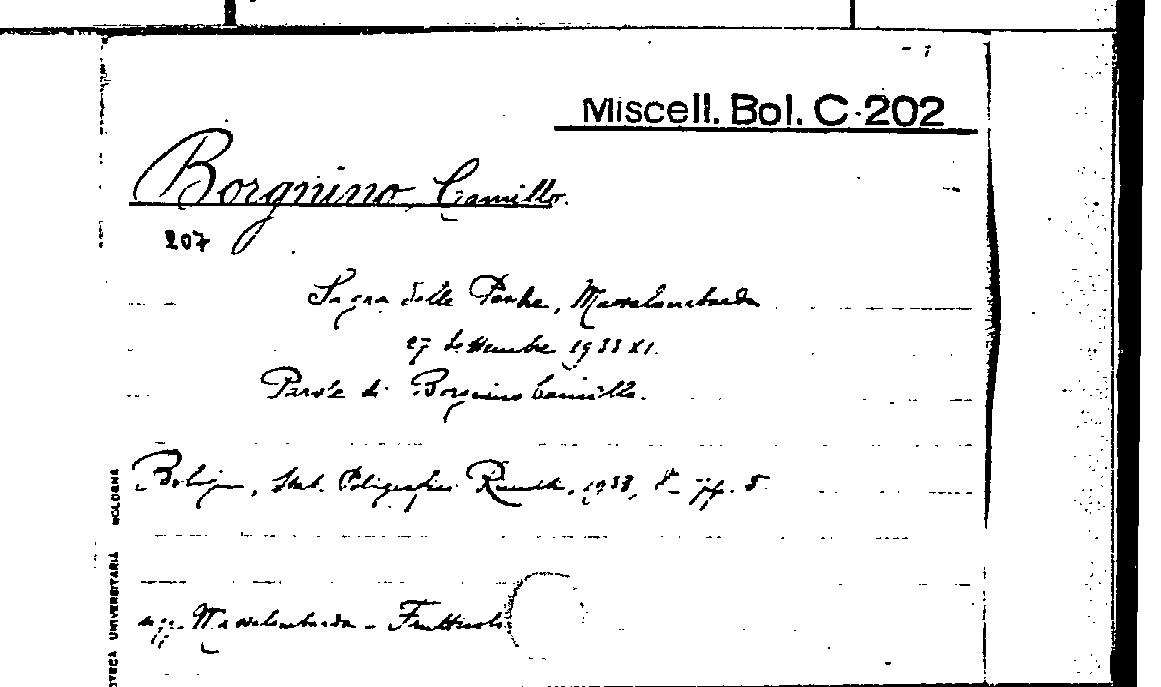 Miscell. Bol. C. 202
Borgnino Camillo.
207
Sagra delle Pesche, Massalombarda
27 settembre 1933 XI.
Parole di Borgnino Camillo.
Bologna, Stab. Poligrafici Riuniti, 1933, 8° pp. 8
sogg. Massalombarda - Frutticol
BIBLIOTECA UNIVERSITARIA BOLOGNA